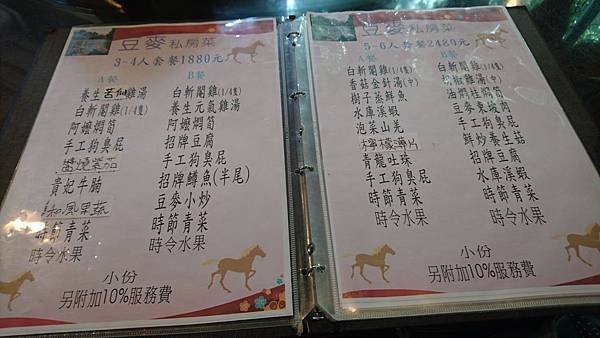 豆麥私房菜
3-4人套餐1880元
A餐
白斬閹雞(1/4隻)
養生苦瓜雞湯
阿嬤燜筍
手工狗臭屁
醬燒菜品
貴妃牛腩
和風果蔬
時節青菜
時令水果
B餐
白斬閹雞(1/4隻)
養生元氣雞湯
阿嬤燜筍
招牌豆腐
手工狗臭屁
招牌鱘魚(半尾)
豆麥小炒
時節青菜
時令水果
小份
另附加10%服務費
豆麥私房菜
5-6人套餐2480元
A餐
白斬閹雞(1/4隻)
香菇金針湯(中)
樹子蒸鮮魚
水庫溪蝦
泡菜山羌
檸檬薄片
青龍吐珠
手工狗臭屁
時節青菜
時令水果
B餐
白斬閹雞(1/4隻)
胡椒雞湯(中)
油燜桂筍
豆麥東坡肉
手工狗臭屁
鮮炒養生菇
招牌豆腐
水庫溪蝦
時節青菜
時令水果
小份
另附加10%服務費